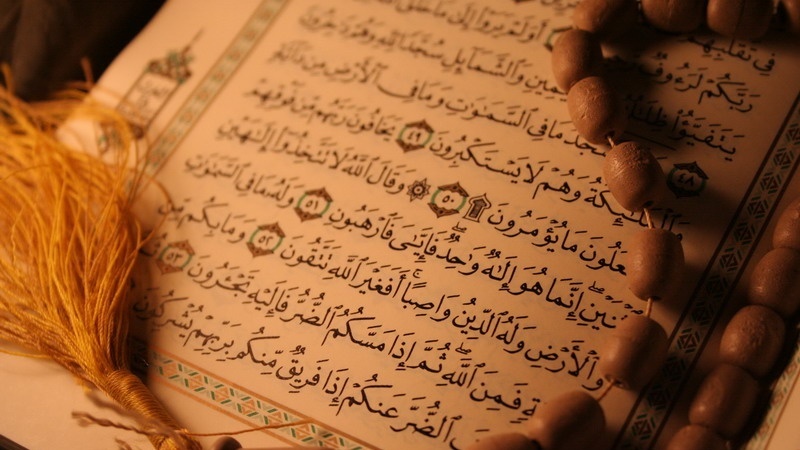 فِى تَقَلُّبِهِمْ
رَبَّكُمْ أَوَلَمْ يَرَوْا۟ إِلَىٰ مَا خَلَقَ
يَتَفَيَّؤُا۟ ظِلَـٰلُهُۥ ٱلْيَمِينِ وَٱلشَّمَآئِلِ سُجَّدًا لِّلَّهِ وَهُمْ دَٰخِرُونَ
٤٨ مَا فِى ٱلسَّمَـٰوَٰتِ وَمَا فِى ٱلْأَرْضِ مِن دَآبَّةٍ
وَٱلْمَلَـٰٓئِكَةُ وَهُمْ لَا يَسْتَكْبِرُونَ ٤٩ يَخَافُونَ رَبَّهُم مِّن فَوْقِهِمْ
وَيَفْعَلُونَ مَا يُؤْمَرُونَ ۩ ٥٠ ۞ وَقَالَ ٱللَّهُ لَا تَتَّخِذُوٓا۟ إِلَـٰهَيْنِ
ٱثْنَيْنِ إِنَّمَا هُوَ إِلَـٰهٌ وَٰحِدٌ فَإِيَّـٰىَ فَٱرْهَبُونِ ٥١ وَلَهُۥ مَا فِى ٱلسَّمَـٰوَٰتِ
وَٱلْأَرْضِ وَلَهُ ٱلدِّينُ وَاصِبًا أَفَغَيْرَ ٱللَّهِ تَتَّقُونَ ٥٢ وَمَا بِكُم مِّن
فَمِنَ ٱللَّهِ ثُمَّ إِذَا مَسَّكُمُ ٱلضُّرُّ فَإِلَيْهِ تَجْـَٔرُونَ ٥٣
ٱلضُّرَّ عَنكُمْ إِذَا فَرِيقٌ مِّنكُم بِرَبِّهِمْ يُشْرِكُونَ